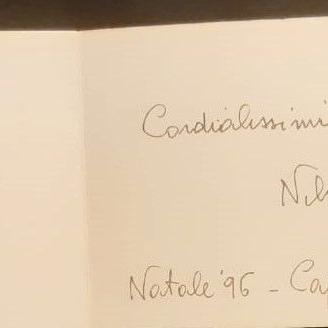 Cordialissimi
Natale '96 -